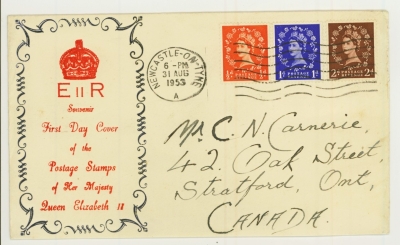 E II R
Souvenir
First Day Cover
of the
Postage Stamps
of Her Majesty
Queen Elizabeth II
NEWCASTLE-ON-TYNE
6 - PM
31 AUG
1953
A
½d
1d
2d
POSTAGE REVENUE
POSTAGE REVENUE
POSTAGE REVENUE
Mr. C. N. Carnerie,
42 Oak Street,
Stratford, Ont,
CANADA.